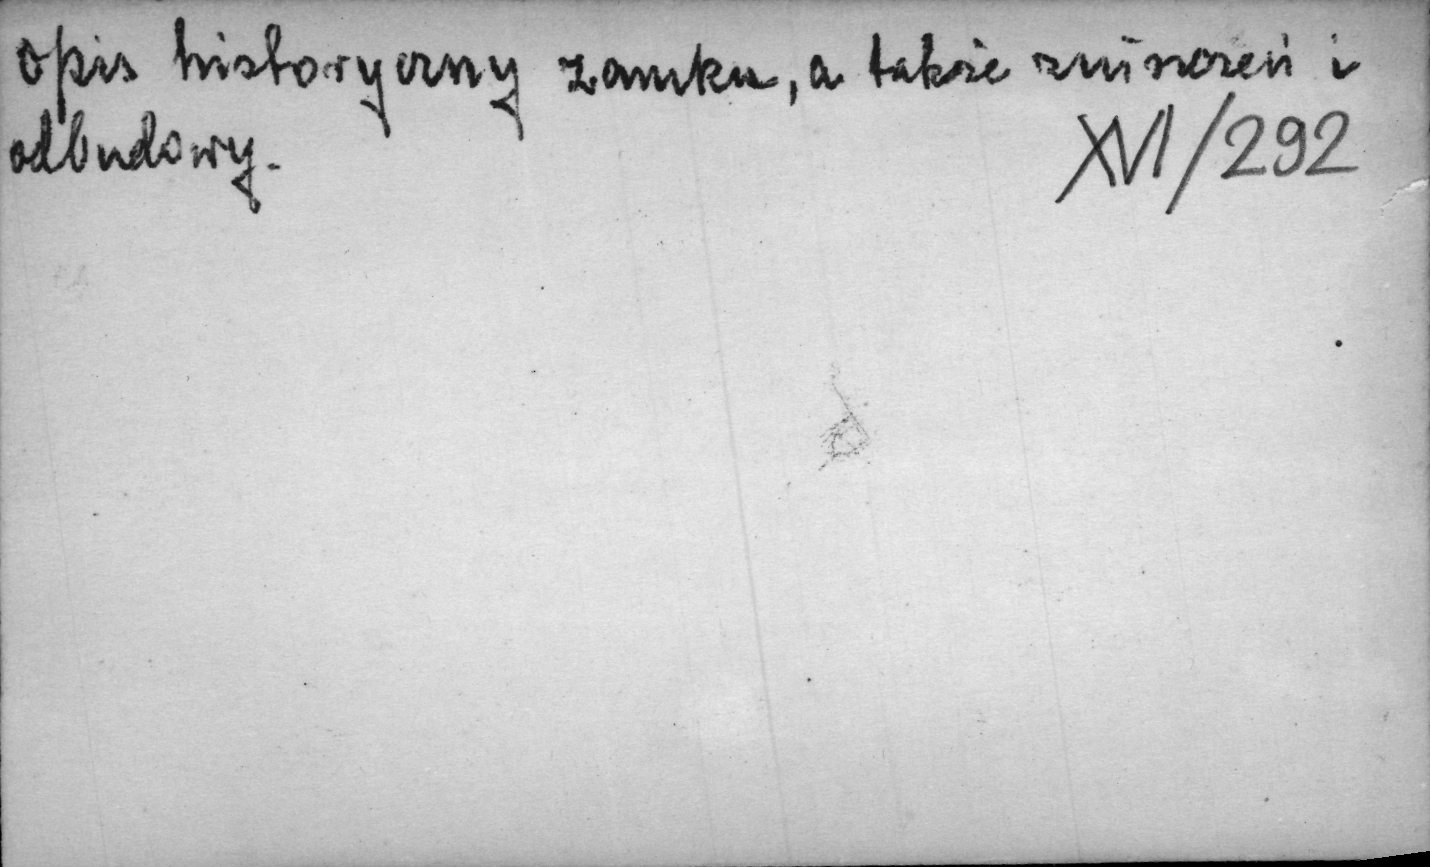 opis historyczny zamku, a także zniszczeń i
odbudowy.
XVI/292